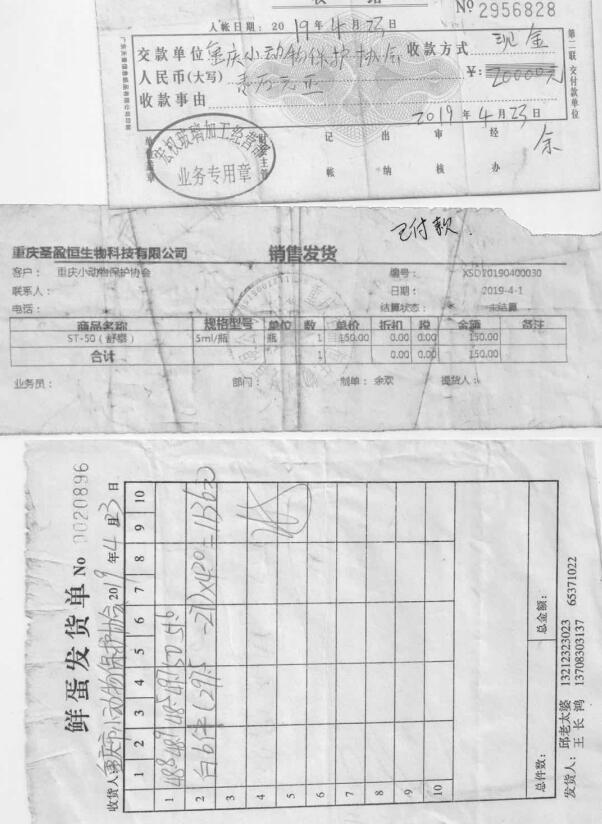 收 据
№ 2956828
入帐日期: 2019年4月23日
交款单位 重庆小动物保护协会 收款方式 现金
人民币(大写) 元正 ¥: 20000元
收款事由
2019年4月23日
第二联 交付款单位
单位盖章 财务主管 记帐 出纳 审核 经办 余
玻璃加工经营部
业务专用章
已付款
重庆圣盈恒生物科技有限公司 销售发货
客户: 重庆小动物保护协会 编号: XSD20190400030
联系人: 日期: 2019-4-1
电话: 结算状态: 未结算
商品名称 规格型号 单位 数 单价 折扣 税 金额 备注
ST-50(舒泰) 5ml/瓶 瓶 1 150.00 0.00 0.00 150.00
合计 1 0.00 0.00 150.00
业务员: 部门: 制单: 余欢 提货人:
鲜蛋发货单 No 0020896
收货人 重庆市小动物保护协会 2019年4月3日
1 2 3 4 5 6 7 8 9 10
1
2
3
4
5
6
7
8
9
10
总件数: 总金额:
发货人: 邱老太婆 13212323023 65371022
王长鸿 13708303137